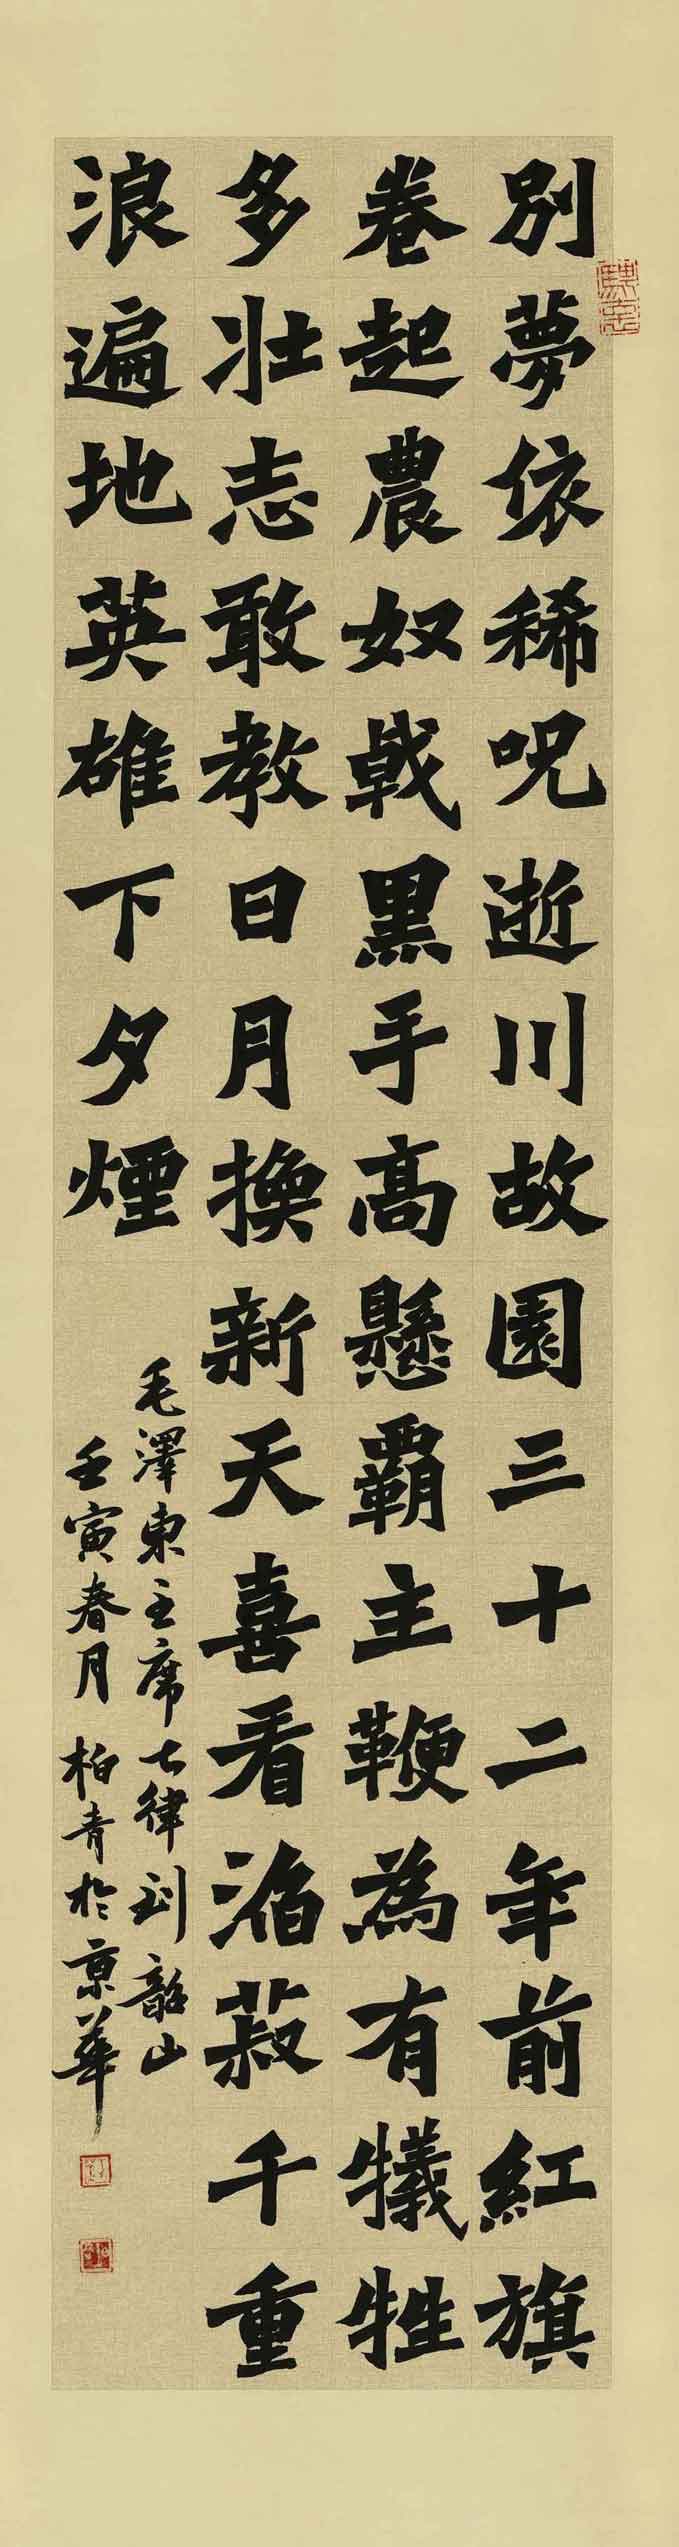 別夢依稀呪逝川故園三十二年前紅旗
卷起農奴戟黑手高懸霸主鞭為有犧牲
多壯志敢教日月換新天喜看滔菽千重
浪遍地英雄下夕煙
毛澤東主席七律到韶山
壬寅春月柏青於京華